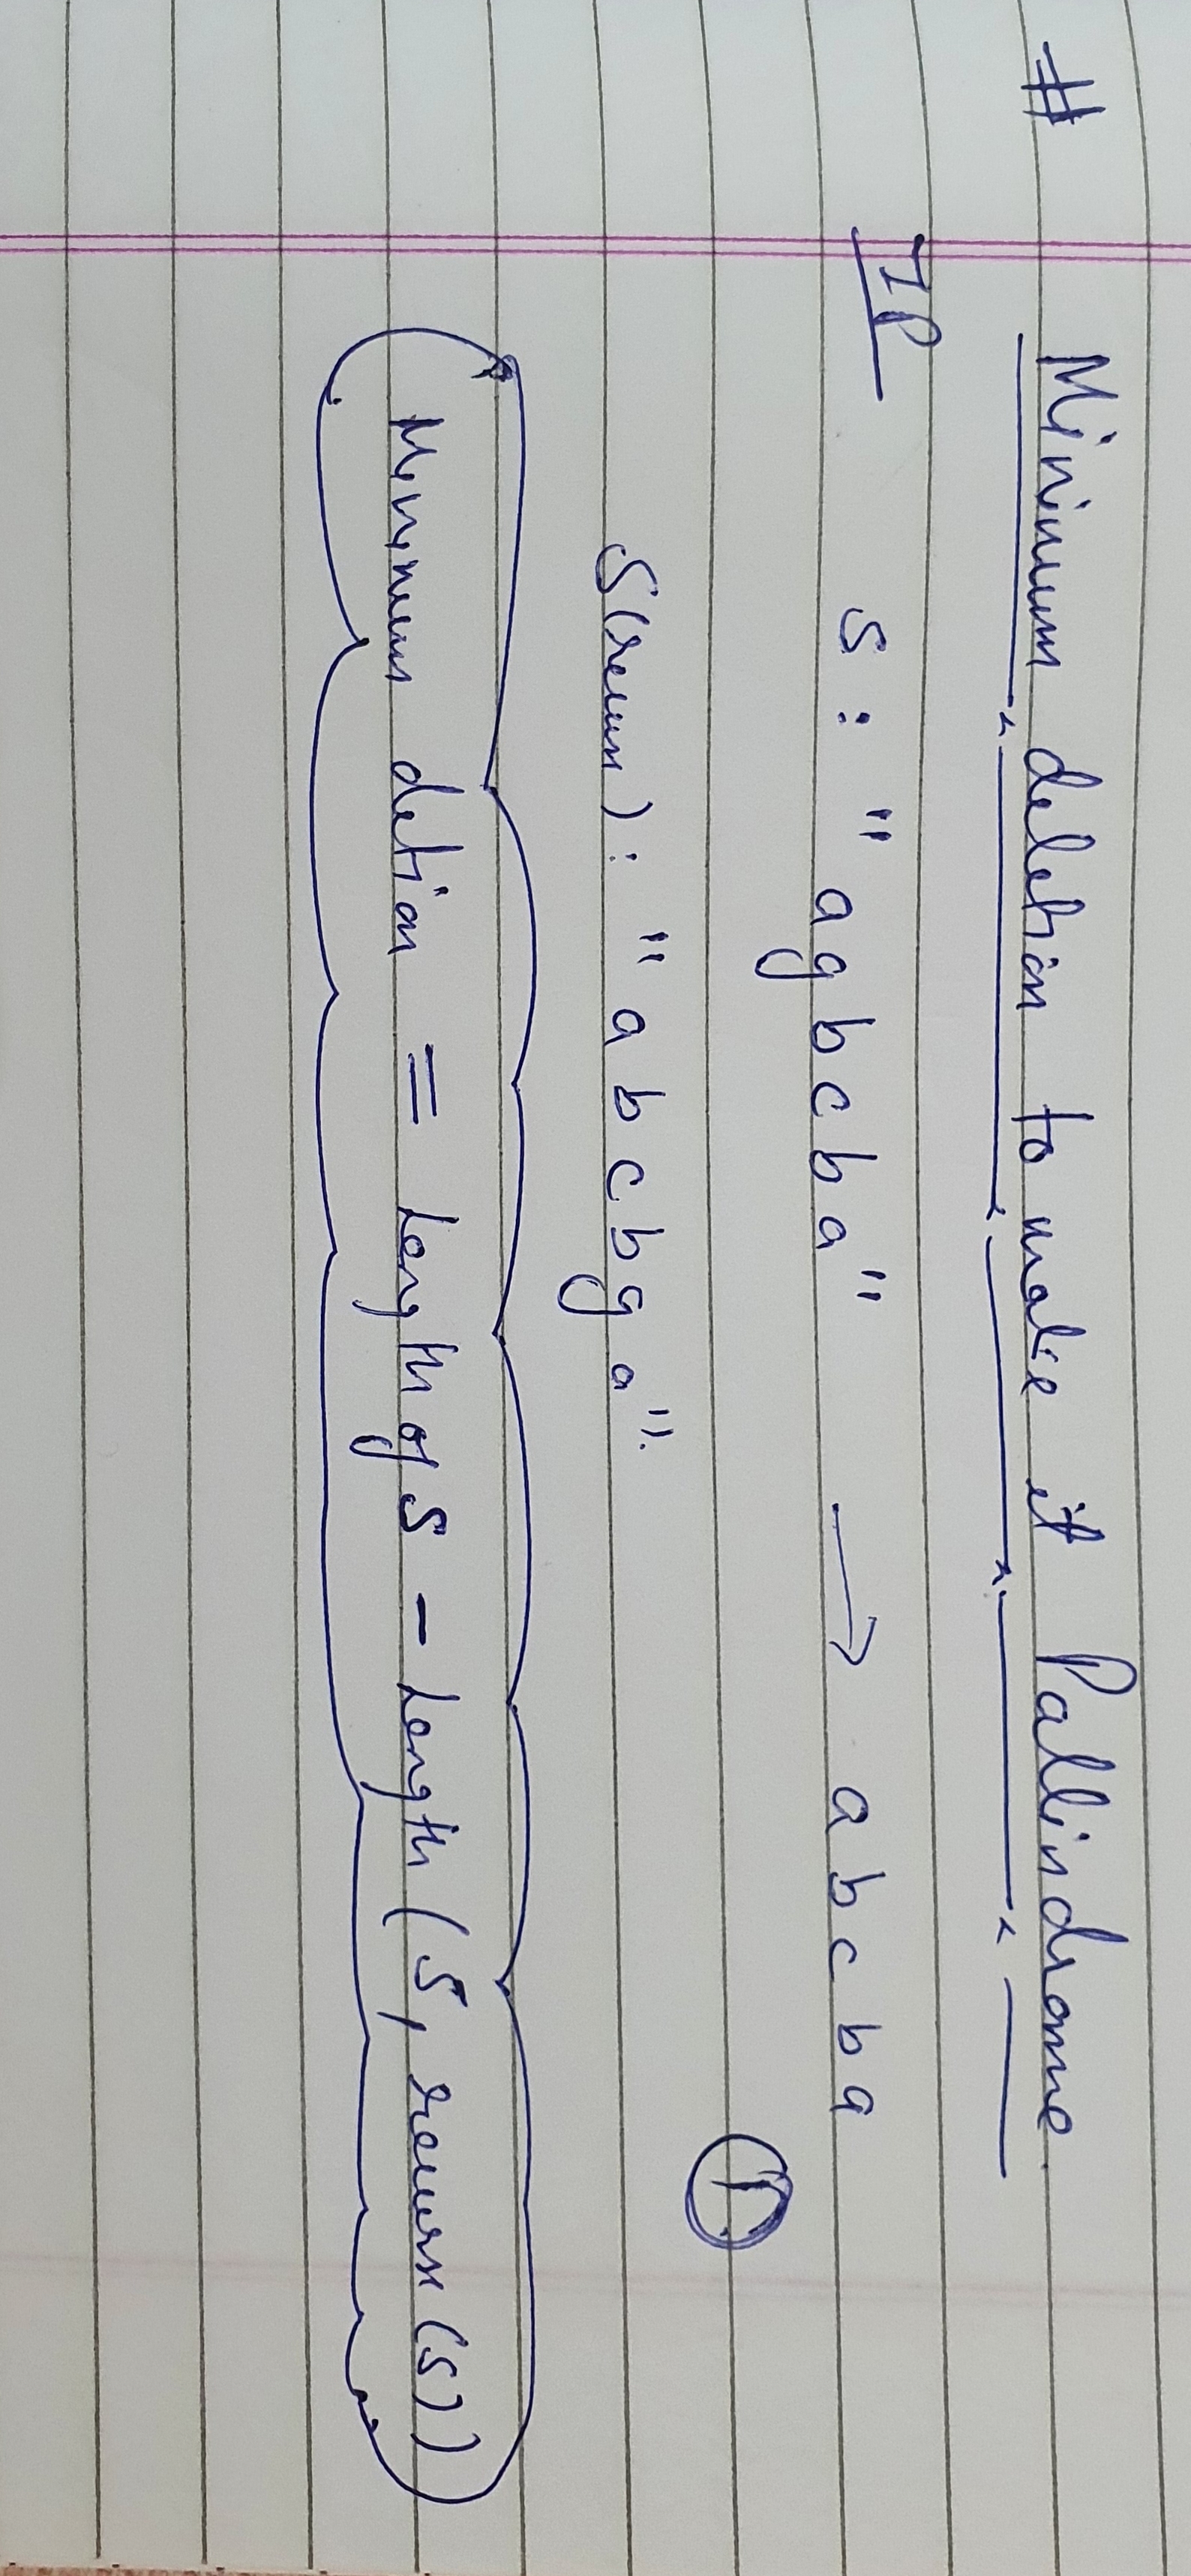 # Minimum deletion to make it Pallindrome.
IP
S : "agbcba" → abcba
1
S(reverse) : "abcbga".
Minimum detion = Length of S - Length (S, reverse(S))